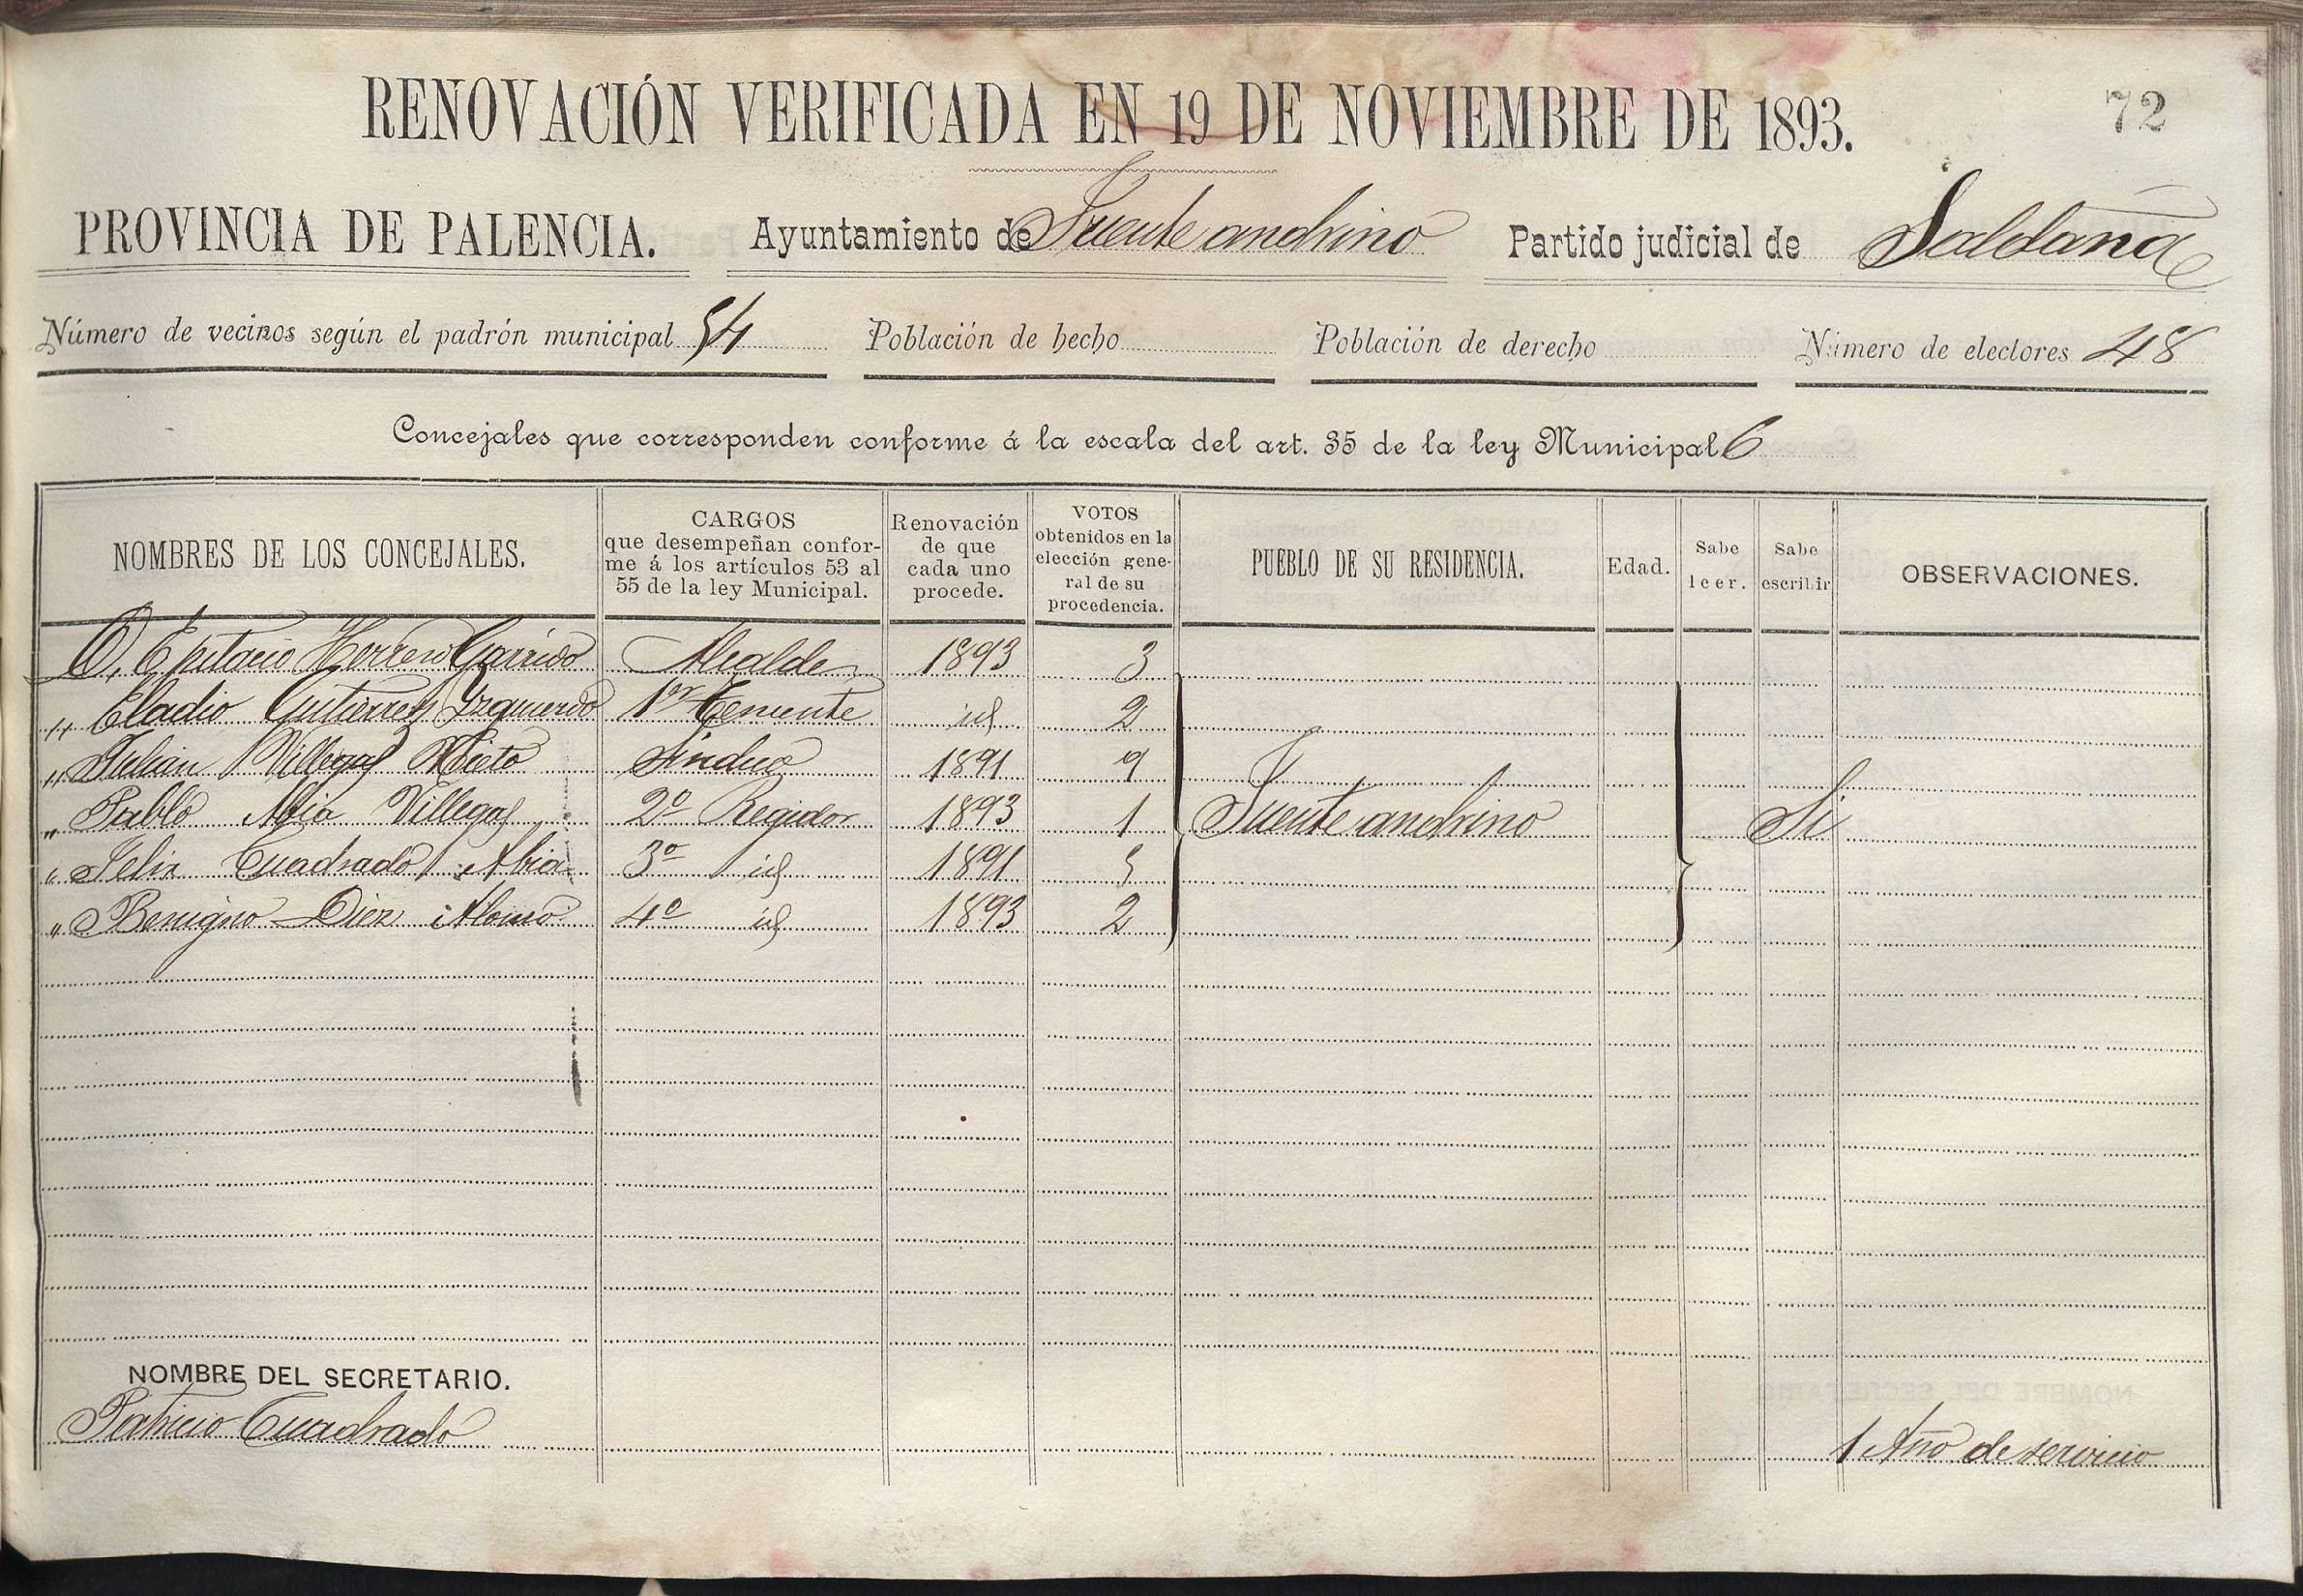 72
RENOVACIÓN VERIFICADA EN 19 DE NOVIEMBRE DE 1893.
PROVINCIA DE PALENCIA. Ayuntamiento de Fuente andrino Partido judicial de Saldaña
Número de vecinos según el padrón municipal 54 Población de hecho Población de derecho Número de electores 48
Concejales que corresponden conforme á la escala del art. 35 de la ley Municipal 6
NOMBRES DE LOS CONCEJALES.
CARGOS
que desempeñan confor-
me á los artículos 53 al
55 de la ley Municipal.
Renovación
de que
cada uno
procede.
VOTOS
obtenidos en la
elección gene-
ral de su
procedencia.
PUEBLO DE SU RESIDENCIA.
Edad.
Sabe
leer.
Sabe
escribir
OBSERVACIONES.
D. Epitacio Herrero Garrido Alcalde 1893 3
" Eladio Gutierrez Yzquierdo 1er Teniente id 2
" Julian Villegas Nieto Sindico 1891 9
" Pablo Abia Villegas 2º Regidor 1893 1 Fuente andrino Si
" Felix Cuadrado Abia 3º id 1891 5
" Benigno Diez Alonso 4º id 1893 2
NOMBRE DEL SECRETARIO.
Patricio Cuadrado 1 Año de servicio